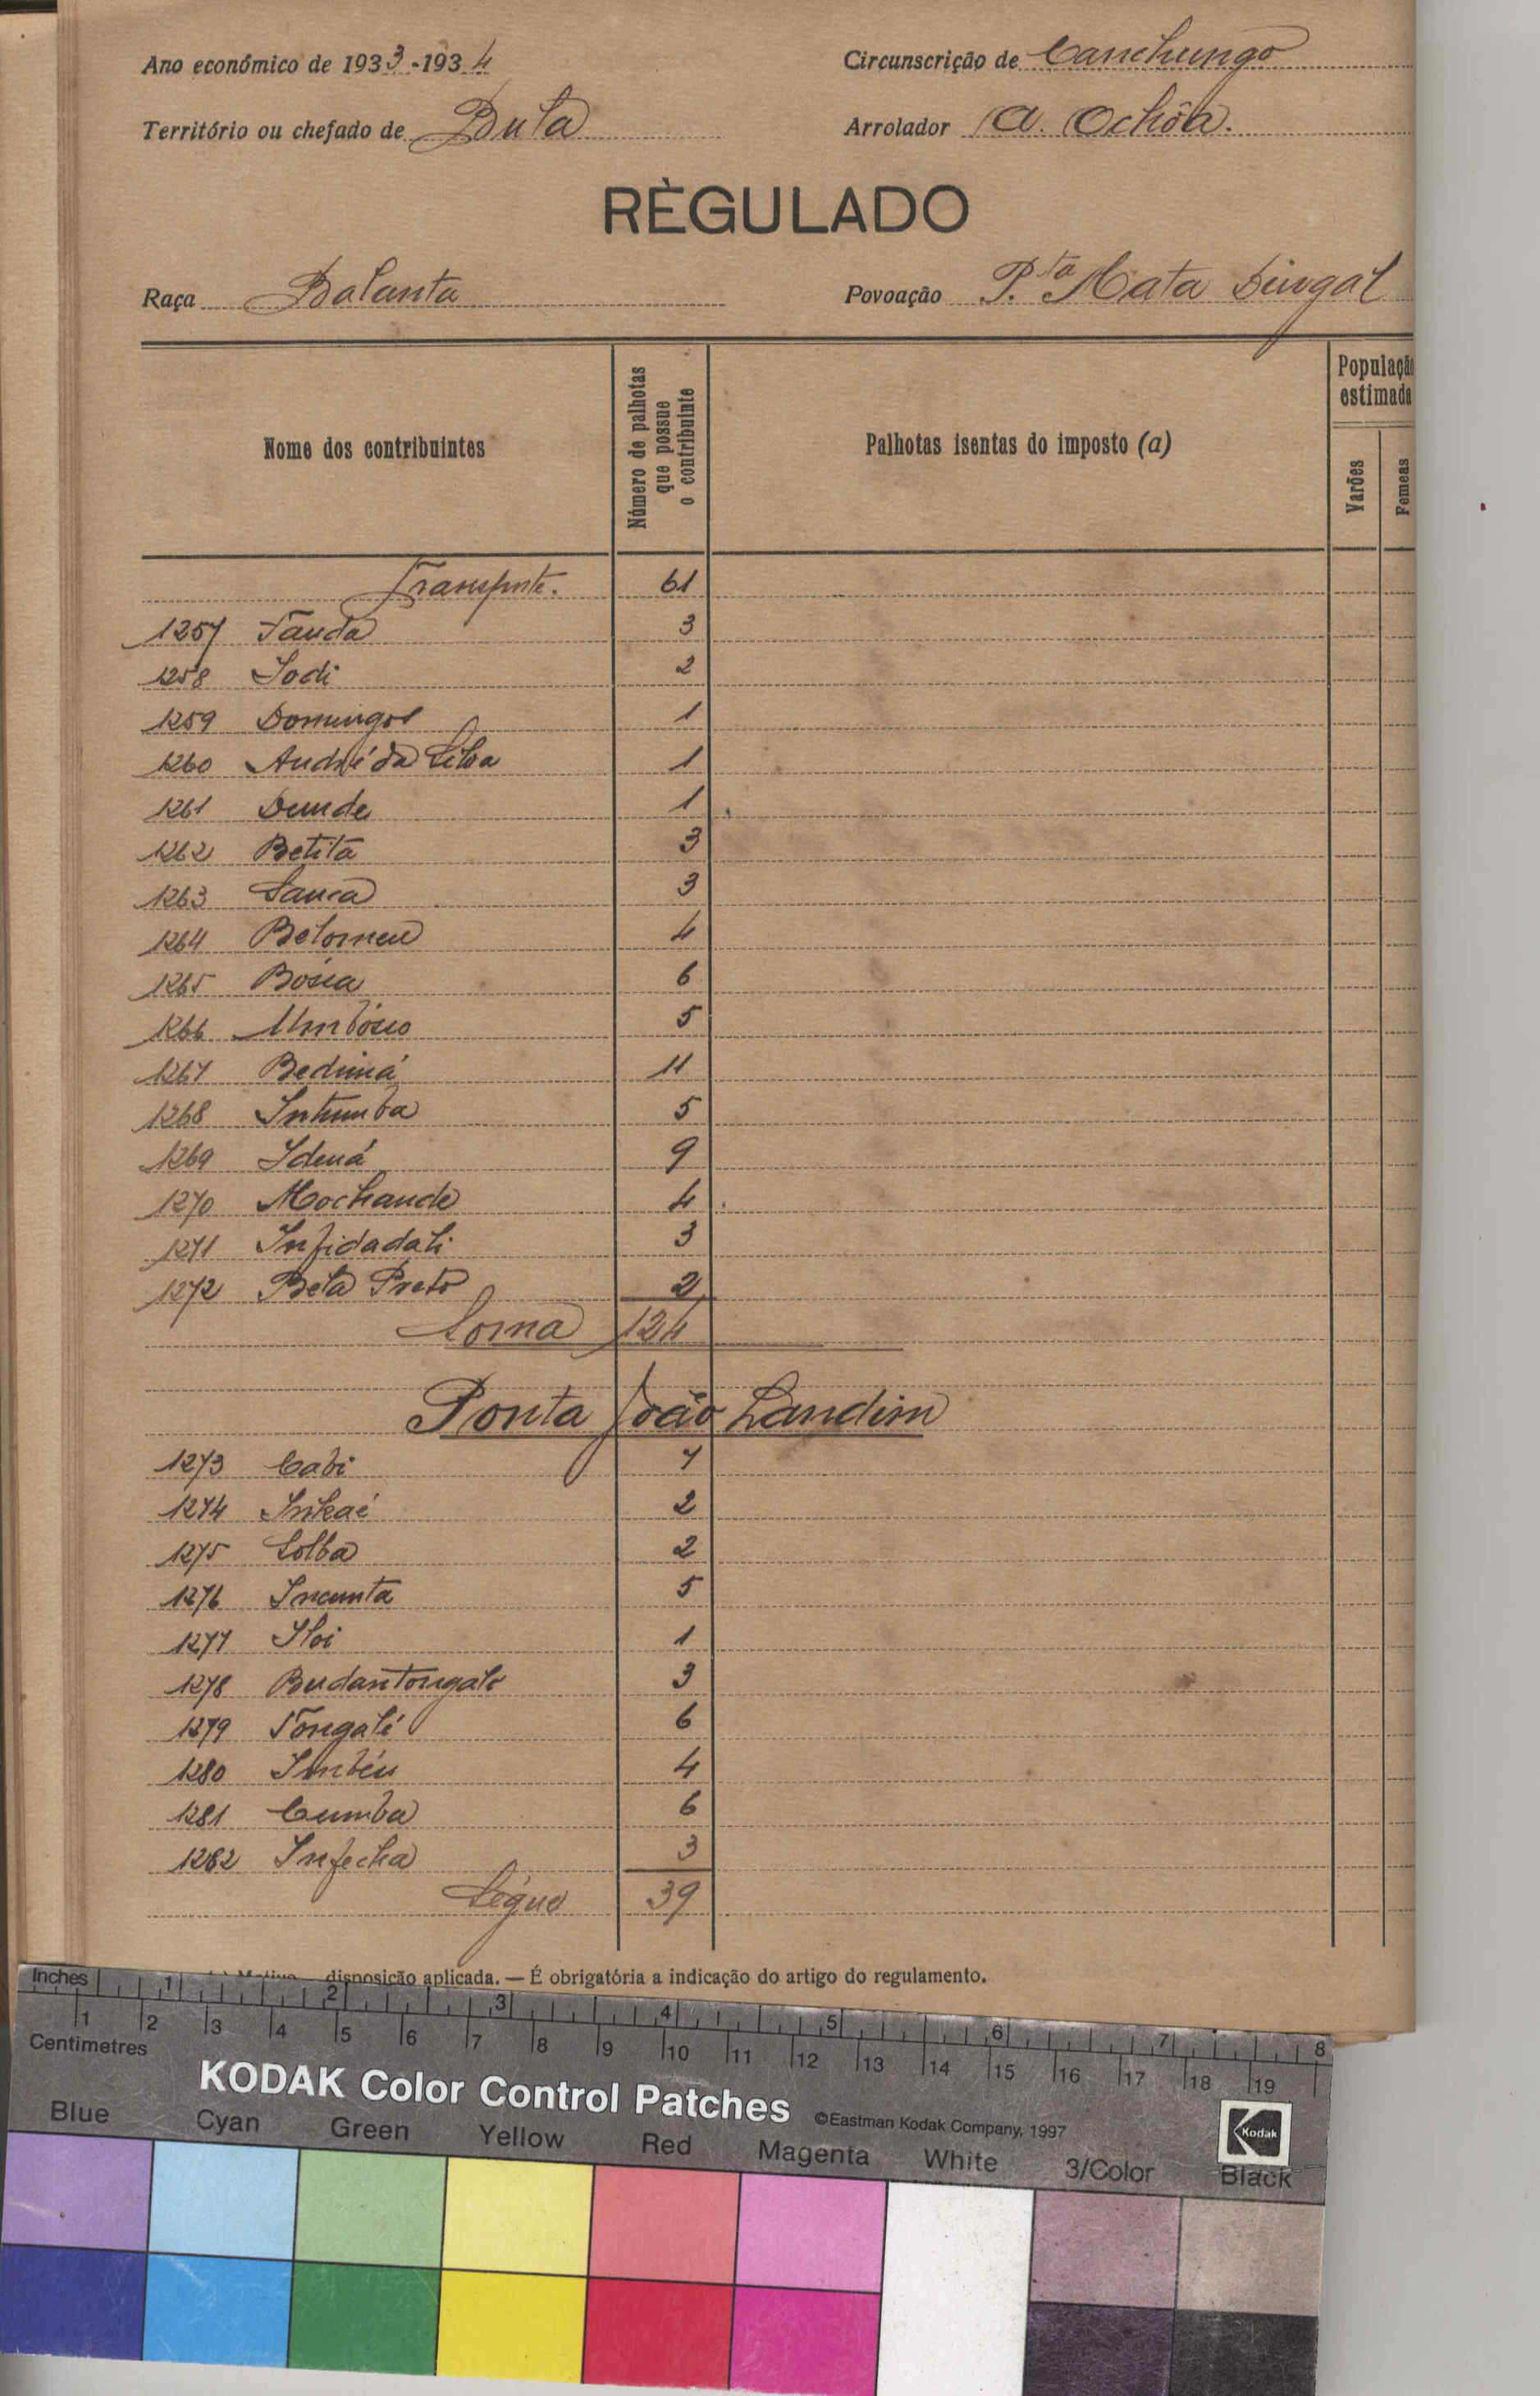 Ano económico de 1933-1934
Circunscrição de Canchungo
Território ou chefado de Bula
Arrolador A. Ochôa.
RÈGULADO
Raça Balanta
Povoação P.ta Mata Dingal
Nome dos contribuintes
Número de palhotas que possue o contribuinte
Palhotas isentas do imposto (a)
População estimada
Varões
Femeas
Transporte. 61
1257 Tauda 3
1258 Sodi 2
1259 Domingos 1
1260 André da Silva 1
1261 Dunde 1
1262 Betita 3
1263 Sanca 3
1264 Belomeu 4
1265 Bósca 6
1266 Umbósco 5
1267 Bedimá 11
1268 Intumba 5
1269 Idená 9
1270 Mochande 4
1271 Infidadali 3
1272 Bela Preto 2
Soma 124
Ponta João Landim
1273 Cabi 7
1274 Inkaé 2
1275 Solba 2
1276 Incunta 5
1277 Iloi 1
1278 Budantongalo 3
1279 Tongalé 6
1280 Imbéu 4
1281 Cumba 6
1282 Infecha 3
Ségue 39
disposição aplicada. — É obrigatória a indicação do artigo do regulamento.
Inches 1 2 3 4 5 6 7 8
1 2 3 4 5 6 7 8 9 10 11 12 13 14 15 16 17 18 19
Centimetres
KODAK Color Control Patches
©Eastman Kodak Company, 1997
Kodak
Blue Cyan Green Yellow Red Magenta White 3/Color Black